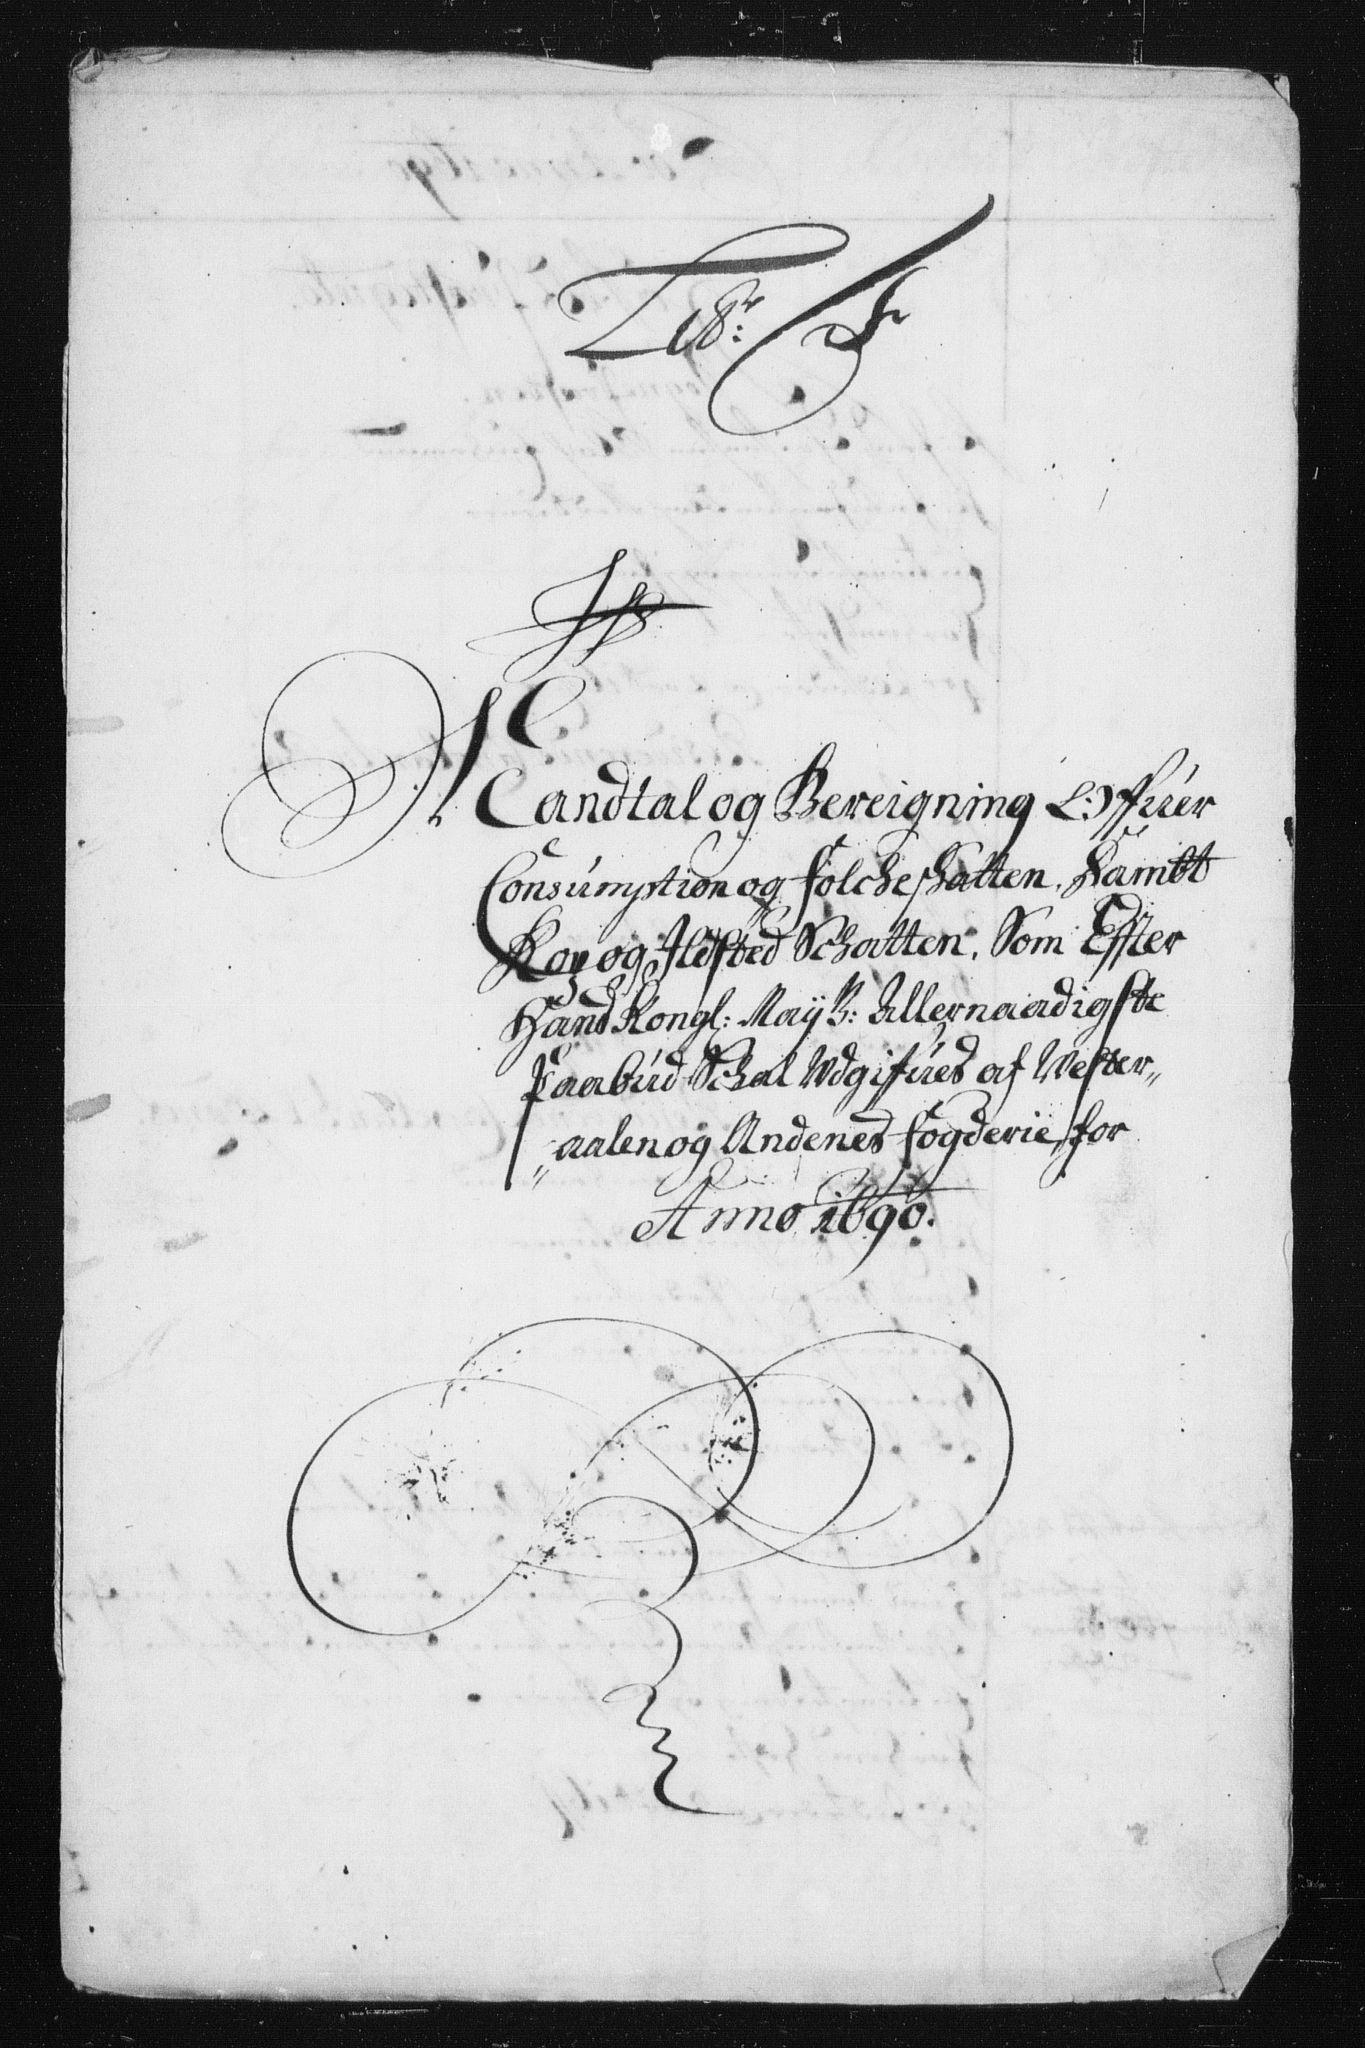 Mandtal og Bereigning Offuer
Consumption og folcheschatten, Sambt
Koy og Ildsted Schatten, Som Effter
Hans Kongl: Maÿtz: Allernaadigste
Paabud Schal Udgifues af Wester„
„aalen og Andenes fogderie, for
Anno 1690.